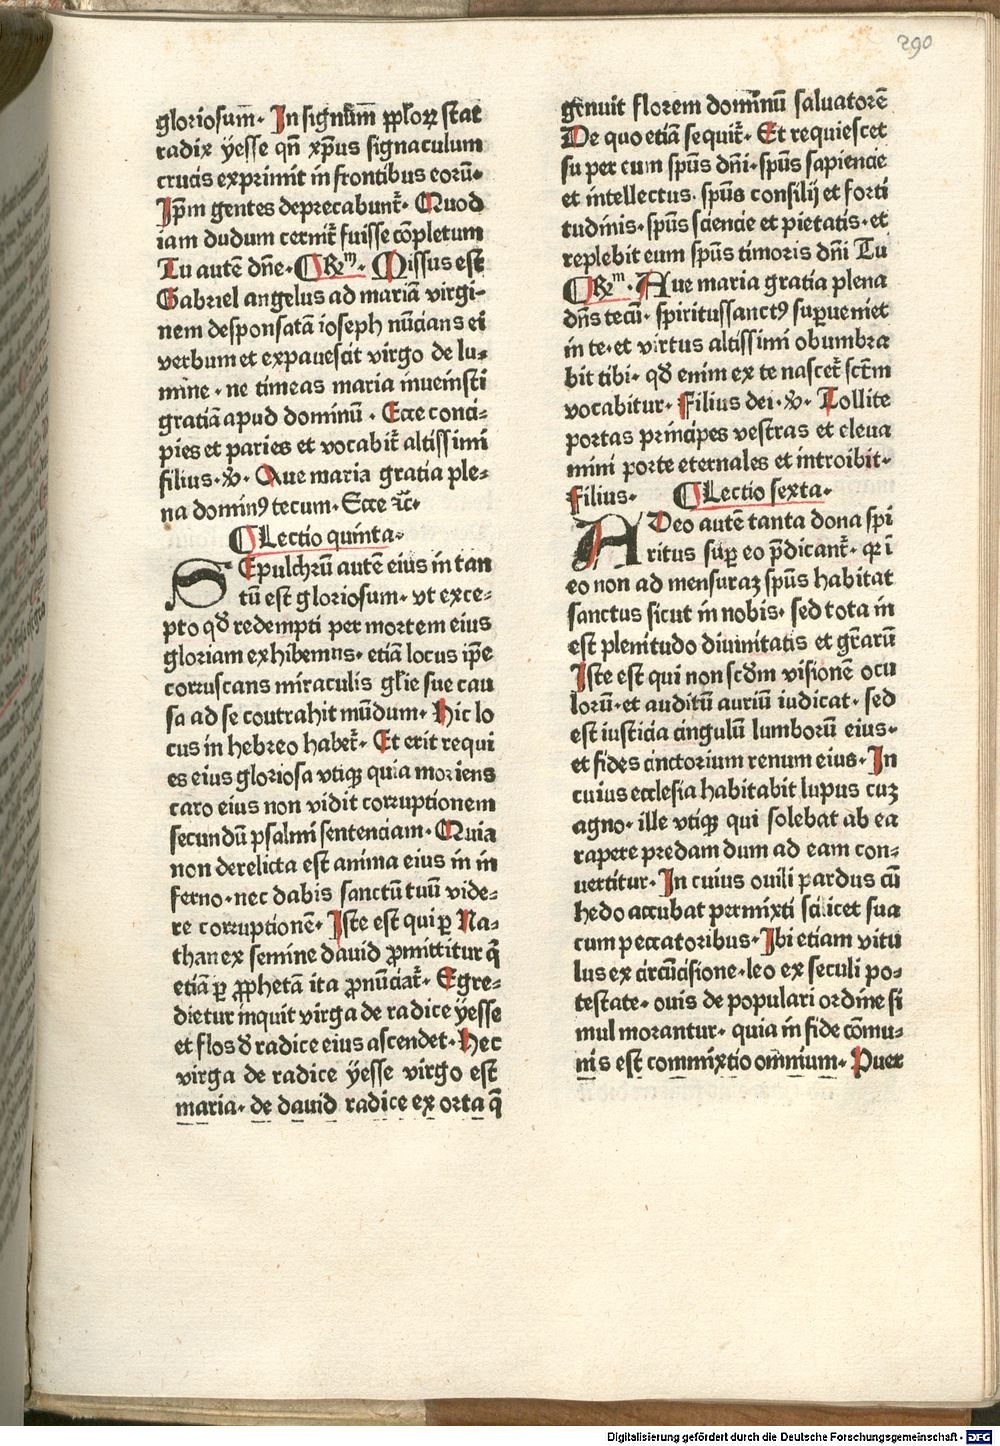 290
gloriosum̄. In signūm̄ pp̄loꝝ stat
radix ÿesse qn̄ xp̄us signaculum
crucis exprimit in frontibus eorū.
Ip̄m gentes deprecabunt̄. Quod
iam dudum cernit̄ fuisse cōpletum
Tu autē dn̄e. ¶ Rm. Missus est
Gabriel angelus ad mariā virgi-
nem desponsatā ioseph nūcians ei
verbum et expauescit virgo de lu-
mine. ne timeas maria inuenisti
gratiā apud dominū. Ecce conci-
pies et paries et vocabit̄ altissimi
filius. ℣. Aue maria gratia ple-
na dominꝰ tecum. Ecce ꝛc̄.
¶ Lectio quinta.
SEpulchrū autē eius in tan
tū est gloriosum. vt exce-
pto qđ redempti per mortem eius
gloriam exhibemus. etiā locus ip̄e
corruscans miraculis gl̄ie sue cau
sa ad se contrahit mūdum. Hic lo
cus in hebreo habet̄. Et erit requi
es eius gloriosa vtiqꝫ quia moriens
caro eius non vidit corruptionem
secundū psalmi sentenciam. Quia
non derelicta est anima eius in in
ferno. nec dabis sanctū tuū vide-
re corruptionē. Iste est qui ꝑ Na-
than ex semine dauid ꝓmittitur q̄
etiā ꝑ ꝓphetā ita ꝓnūciat̄. Egre-
dietur inquit virga de radice ÿesse
et flos đ radice eius ascendet. Hec
virga de radice ÿesse virgo est
maria. de dauid radice exorta q̄
genuit florem dominū saluatorē
De quo etiā sequit̄. Et requiescet
super eum sp̄us dn̄i. sp̄us sapiencie
et intellectus. sp̄us consilij et forti
tudinis. sp̄us sciencie et pietatis. et
replebit eum sp̄us timoris dn̄i Tu
¶ Rm. Aue maria gratia plena
dn̄s tecū. spiritussanctꝰ suꝑueniet
in te. et virtus altissimi obumbra
bit tibi. qđ enim ex te nascet̄ sc̄tm
vocabitur. Filius dei. ℣. Tollite
portas principes vestras et eleua
mini porte eternales et introibit.
Filius. ¶ Lectio sexta.
ADeo autē tanta dona spi
ritus suꝑ eo p̄dicant̄. qꝛ ī
eo non ad mensuraꝫ sp̄us habitat
sanctus sicut in nobis. sed tota in
est plenitudo diuinitatis et gr̄arū
Iste est qui non scđm visionē ocu
lorū. et auditū auriū iudicat. sed
est iusticia cingulū lumborū eius.
et fides cinctorium renum eius. In
cuius ecclesia habitabit lupus cuꝫ
agno. ille vtiqꝫ qui solebat ab ea
rapere predam dum ad eam con-
uertitur. In cuius ouili pardus cū
hedo accubat permixti scilicet sua
cum peccatoribus. Ibi etiam vitu
lus ex circūcisione. leo ex seculi po-
testate. ouis de populari ordine si
mul morantur. quia in fide cōmu-
nis est commixtio omnium. Puer
Digitalisierung gefördert durch die Deutsche Forschungsgemeinschaft - DFG